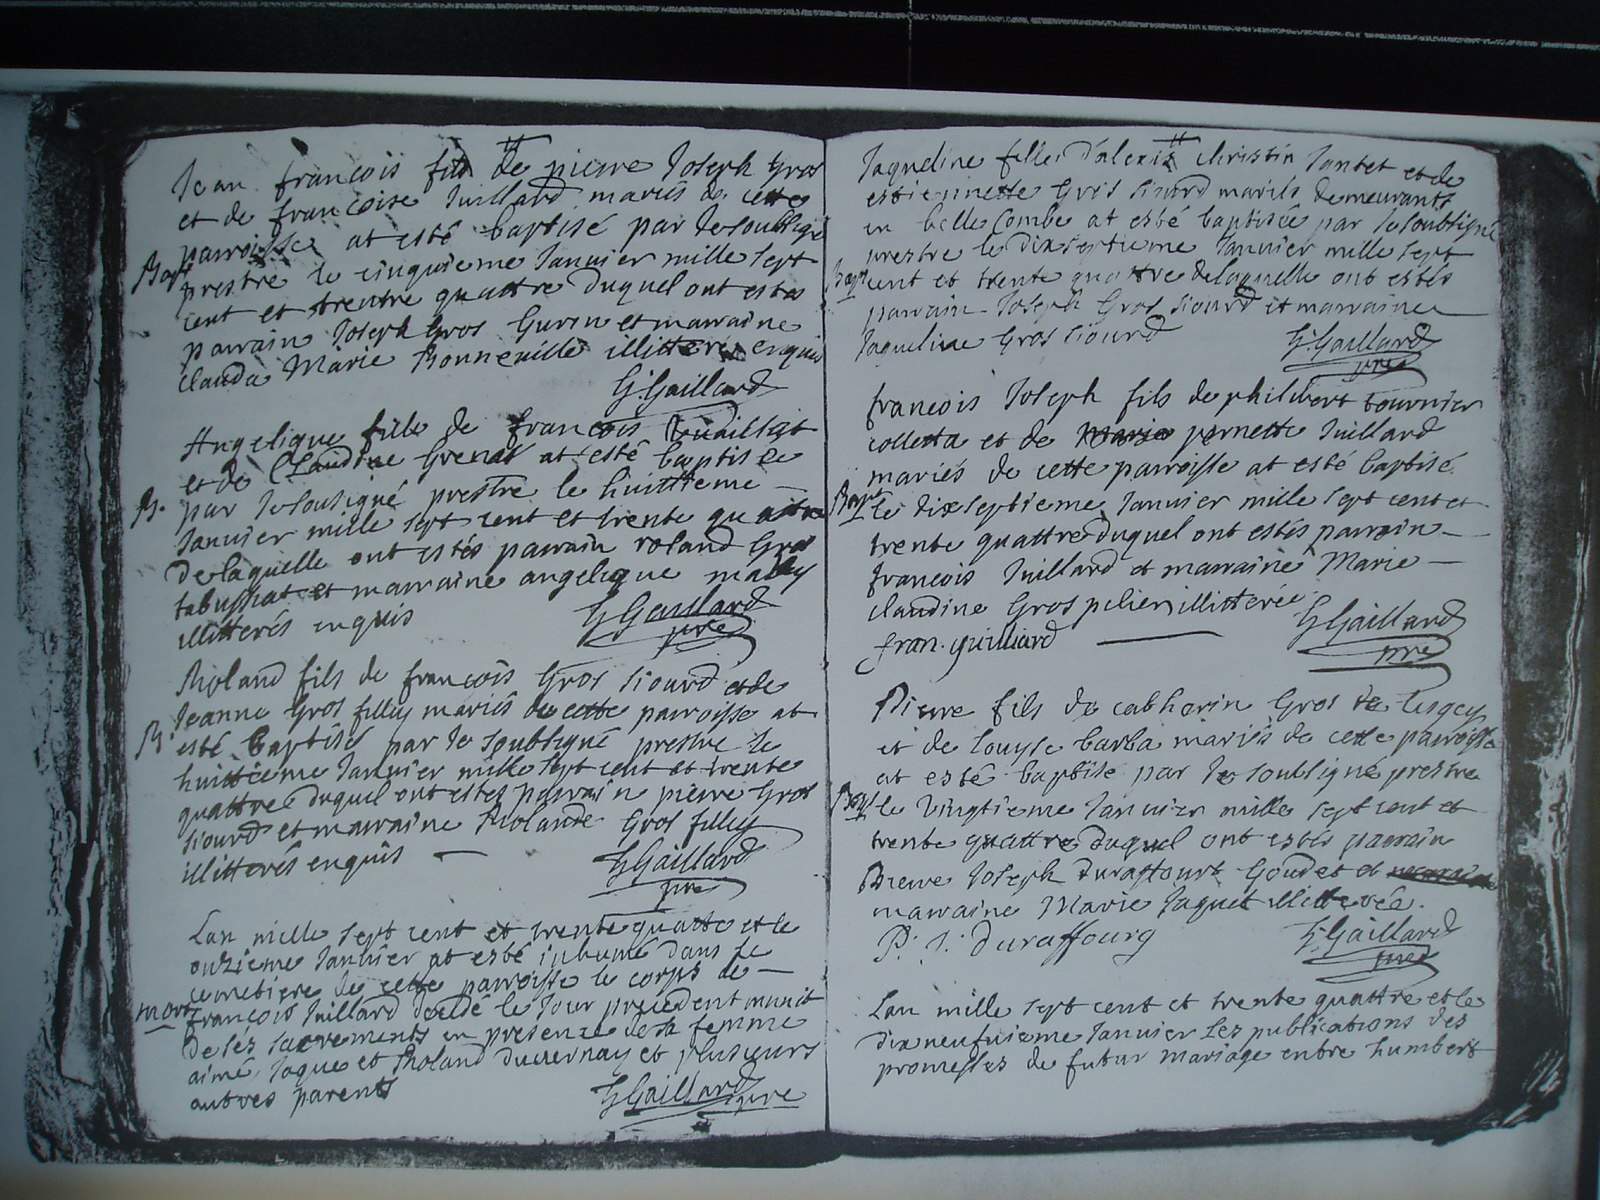 Jean françois fils de pierre Joseph Gros
et de françoise Juillard mariés de cette
parroisse at esté baptisé par Je soubsigné
Bapt prestre le cinquieme Januier mille sept
cent et trente quattre duquel ont estes
parrain Joseph Gros Gurin et marraine
Clauda Marie Bonneuille illitteré enquis
G. Gaillard
Angelique fille de françois Vuaillat
et de Claudine Grenat at esté baptisée
B. par Je sousigné prestre le huittieme
Januier mille sept cent et trente quattre
de laquelle ont estés parrain roland Gros
tabussiat et marraine angelique
illitterés enquis
G Gaillard
pre
Roland fils de françois Gros siourd et de
Jeanne Gros filley mariés de cette parroisse at
B. esté baptisé par Je soubsigné prestre le
huittieme Januier mille sept cent et trente
quattre duquel ont estes parrain pierre Gros
siourd et marraine Rolande Gros filley
illitterés enquis
G Gaillard
pre
Lan mille sept cent et trente quatre et le
onzieme Januier at esté inhumé dans le
cemetiere de cette parroisse le corps de
mort françois Juillard decedé le Jour precedent munit
de sés sacrements en presence de sa femme
aimé Jaque et Roland duuernay et plusieurs
autres parents
G Gaillard pre
Jaqueline fille d'alexis christin Jantet et de
estiennette Gros siourd mariés demeurants
en belle Combe at esté baptisée par Je soubsigné
prestre le dixseptieme Januier mille sept
Bapt cent et trente quattre de laquelle ont estés
parrain Joseph Gros siourd et marraine
Jaqueline Gros siourd
G. Gaillard
pre
françois Joseph fils de philibert tournier
colletta et de pernette Juillard
mariés de cette parroisse at esté baptisé
Bapt le dixseptieme Januier mille sept cent et
trente quattre duquel ont estés parrain
françois Juillard et marraine Marie
claudine Gros pelier illitterée
G Gaillard
fran. guilliard
pre
Pierre fils de catherin Gros
et de louyse barba mariés de cette parroisse
at esté baptisé par Je soubsigné prestre
Bapt le vingtieme Januier mille sept cent et
trente quattre duquel ont estés parrain
Pierre Joseph duraffourt Goudet et
marraine Marie Jaquet illitterée.
P. J. duraffourg
G. Gaillard
pre
Lan mille sept cent et trente quattre et le
dixneufuieme Januier Les publications des
promesses de futur mariage entre humbert